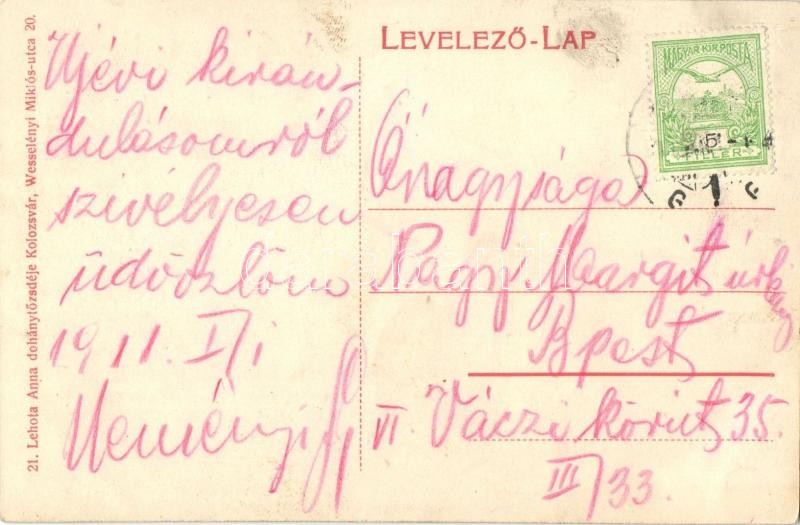 LEVELEZŐ-LAP
MAGYAR KIR. POSTA
5
FILLÉR
Ujévi kirán-
dulásomról
szivélyesen
üdvözlöm
1911. I/1
Neményi
Őnagysága
Nagy Margit úrleány
Bpest
VI Váczi körút 35.
III/33.
21. Lehota Anna dohánytőzsdéje Kolozsvár, Wesselényi Miklós-utca 20.